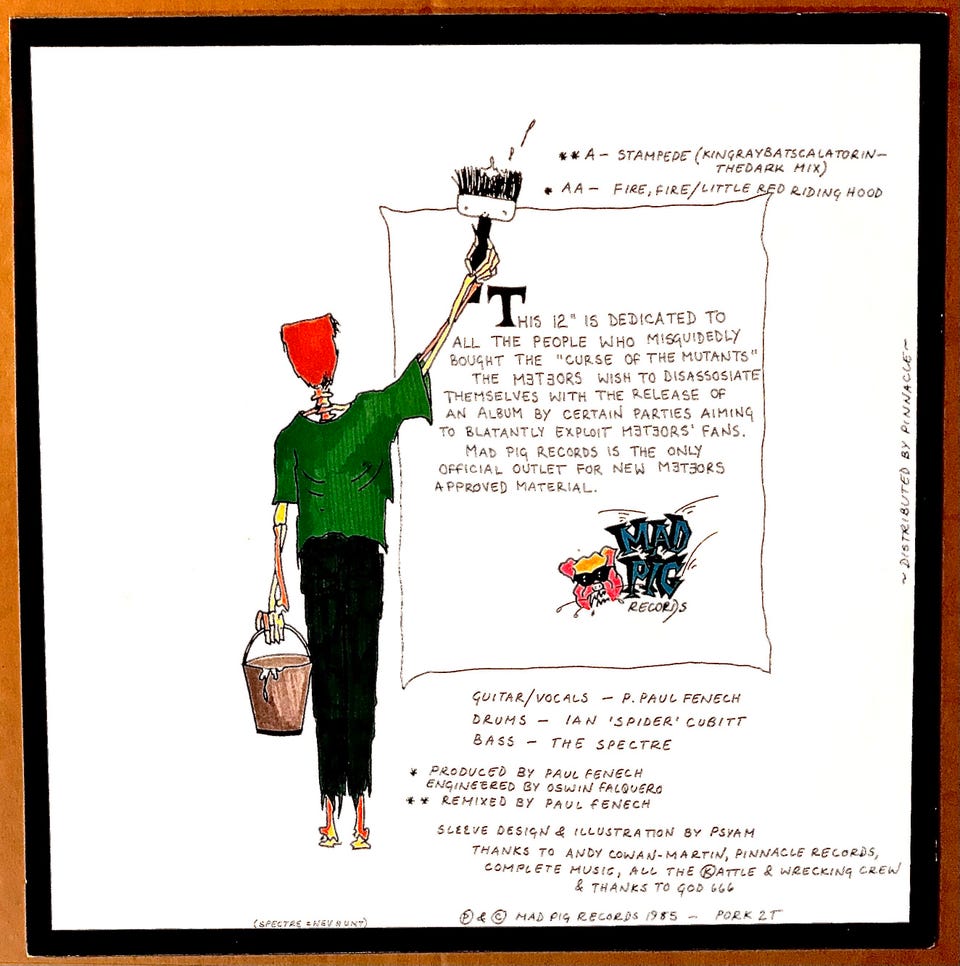 ** A – STAMPEDE (KINGRAYBATSCALATORIN–
THEDARK MIX)
* AA – FIRE, FIRE/LITTLE RED RIDING HOOD
"THIS 12" IS DEDICATED TO
ALL THE PEOPLE WHO MISGUIDEDLY
BOUGHT THE "CURSE OF THE MUTANTS"
THE MƎTƎORS WISH TO DISASSOSIATE
THEMSELVES WITH THE RELEASE OF
AN ALBUM BY CERTAIN PARTIES AIMING
TO BLATANTLY EXPLOIT MƎTƎORS' FANS.
MAD PIG RECORDS IS THE ONLY
OFFICIAL OUTLET FOR NEW MƎTƎORS
APPROVED MATERIAL.
MAD
PIG
RECORDS
~ DISTRIBUTED BY PINNACLE ~
GUITAR/VOCALS – P. PAUL FENECH
DRUMS – IAN 'SPIDER' CUBITT
BASS – THE SPECTRE
* PRODUCED BY PAUL FENECH
ENGINEERED BY OSWIN FALQUERO
** REMIXED BY PAUL FENECH
SLEEVE DESIGN & ILLUSTRATION BY PSYAM
THANKS TO ANDY COWAN-MARTIN, PINNACLE RECORDS,
COMPLETE MUSIC, ALL THE ⓇATTLE & WRECKING CREW
& THANKS TO GOD 666
Ⓟ & © MAD PIG RECORDS 1985 – PORK 2T
(SPECTRE = NEV HUNT)